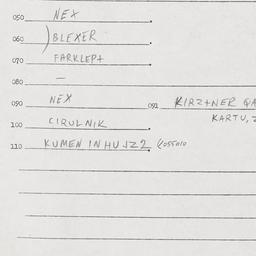 050 NEX
060 )BLEXER
070 FARKLEPT
080 —
090 NEX 091 KIRZTNER GA
KARTU, Z
100 CIRULNIK
110 KUMEN IN HUJZ2